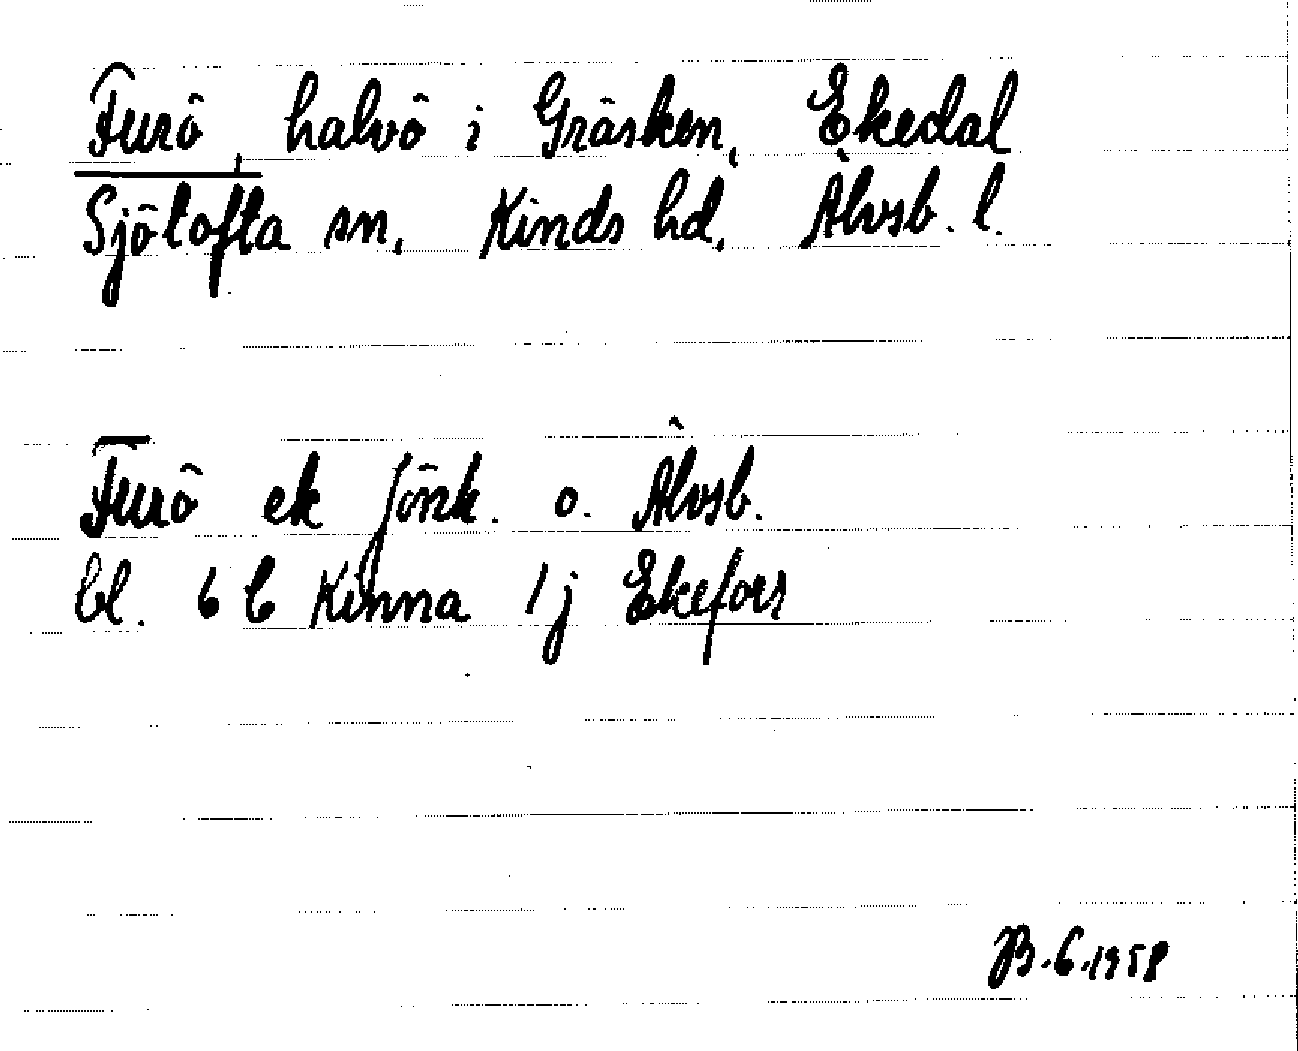 Furö, halvö i Gräsken, Ekedal
Sjötofta sn, Kinds hd, Älvsb. l.
Furö ek Jönk. o. Älvsb.
bl. 6 C Kinna 1 j Ekefors
B.6.1958